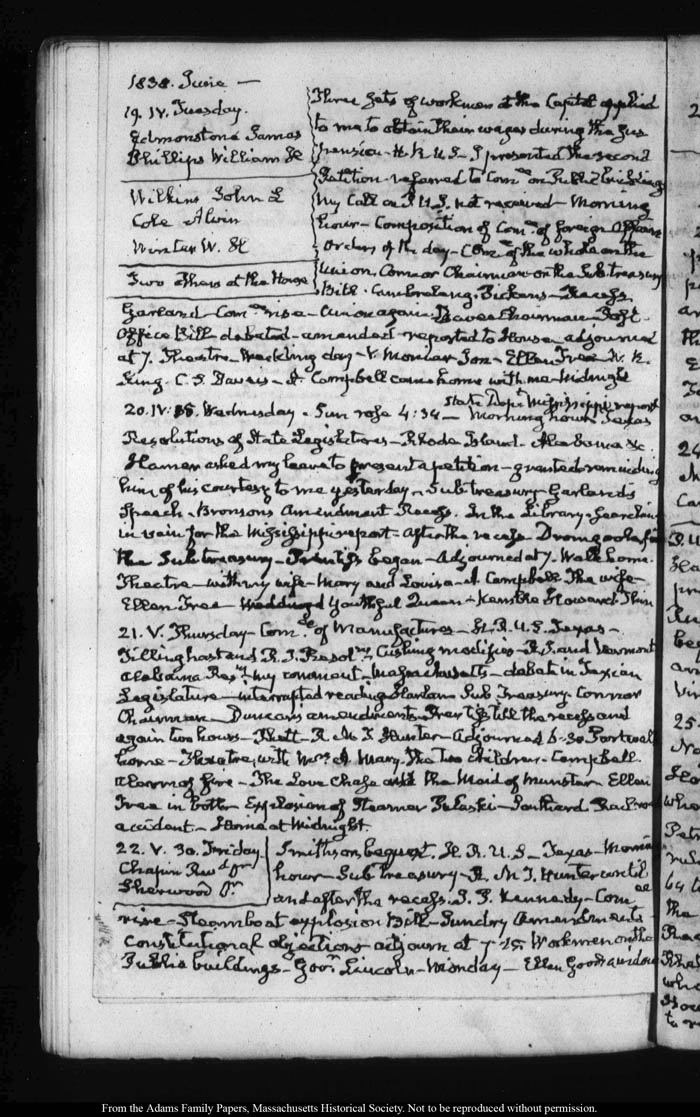 1838. June —
19. IV. Tuesday.
Edmonstone James
Phillips William H
Wilkins John L
Cole Alvin
Winter W. H
Two others at the House
Three Sets of workmen at the Capitol applied
to me to obtain their wages during the Sus
pension. H. R. U. S. I presented the second
Petition referred to Com.ee on Public buildings
My Call on P. U. S. not received — Morning
hour — Composition of Com.ee of foreign Affairs
Orders of the day — Com.ee of the whole on the
Union. Connor Chairman on the Sub treasury
Bill. Cambreleng. Pickens — Recess.
Garland — Com.ee rise — Union again. Chairman Post
Office Bill debated — amended — reported to House — adjourned
at 7. Theatre — Wrecking day — Ellen Tree — W. R.
King. C. S. Daveis — A. Campbell came home with me. Midnight
20. IV: Wednesday. Sun rose 4:34 — Morning hour. Texas
State Dep.t Mississippi report
Resolutions of State Legislatures — Rhode Island. Alabama &c
Hamer asked my leave to present a petition — granted reminding
him of his courtesy to me yesterday. Sub treasury — Garland's
Speech. Bronson's Amendment. Recess. In the Library — Searching
in vain for the Mississippi report — After the recess Dromgoole for
the Sub treasury — Prentiss began — Adjourned at 7. Walk home.
Theatre — with my wife — Mary and Louisa — A. Campbell. The wife
Ellen Tree — Youthful Queen —
21. V. Thursday — Com.ee of Manufactures — H. R. U. S. Texas —
Tillinghast and R. I. Resol.ns Cushing modifies — R. I. and Vermont
Alabama Res.s my comment — Massachusetts — debate in Texian
Legislature — interrupted reading Harlan. Sub Treasury. Connor
Chairman. Duncan's amendments. Prentiss till the recess and
again two hours — Rhett. R. M. T. Hunter — Adjourned 6-30
home — Theatre, with Mrs. A. Mary. The two Children — Campbell.
Alarm of fire — The Love Chase and the Maid of Munster. Ellen
Tree in both — Explosion of Steamer Pulaski — Southard Rail ro
accident. — Home at Midnight.
22. V. 30. Friday
Chapin Rev.d Dr
Sherwood Dr
Smithson bequest. H. R. U. S — Texas — Morning
hour — Sub treasury — R. M. T. Hunter until
and after the recess. J. P. Kennedy — Com.ee
rise — Steam boat explosion Bill — Sundry Amendments
Constitutional objections — adjourn at 7-15. Workmen on the
Public buildings — Gov.r Lincoln — Monday — Ellen
From the Adams Family Papers, Massachusetts Historical Society. Not to be reproduced without permission.